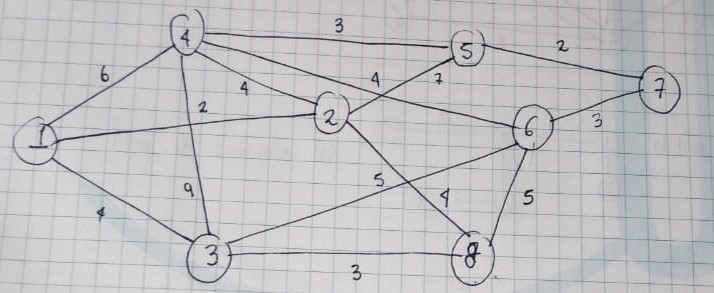 4
3
5
2
7
6
4
4
7
2
2
6
3
1
9
5
4
5
4
3
3
8